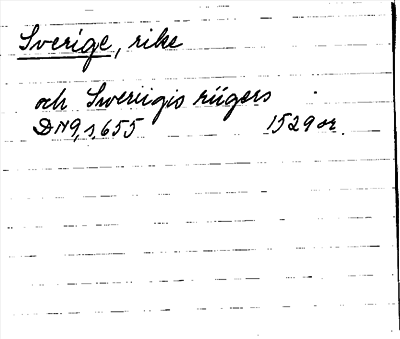 Sverige, rike
och Sweriigis riigers
DN9,s,655 1529 or.